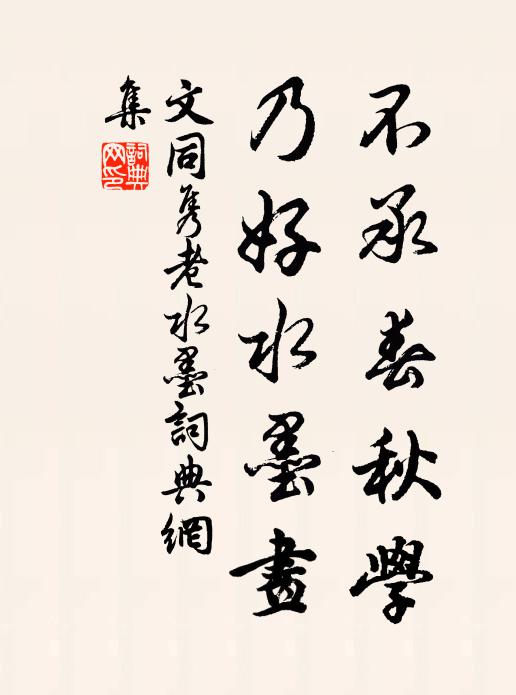 不承春秋學
乃好水墨畫
文同隽老水墨詞典網
集
詞典
網印